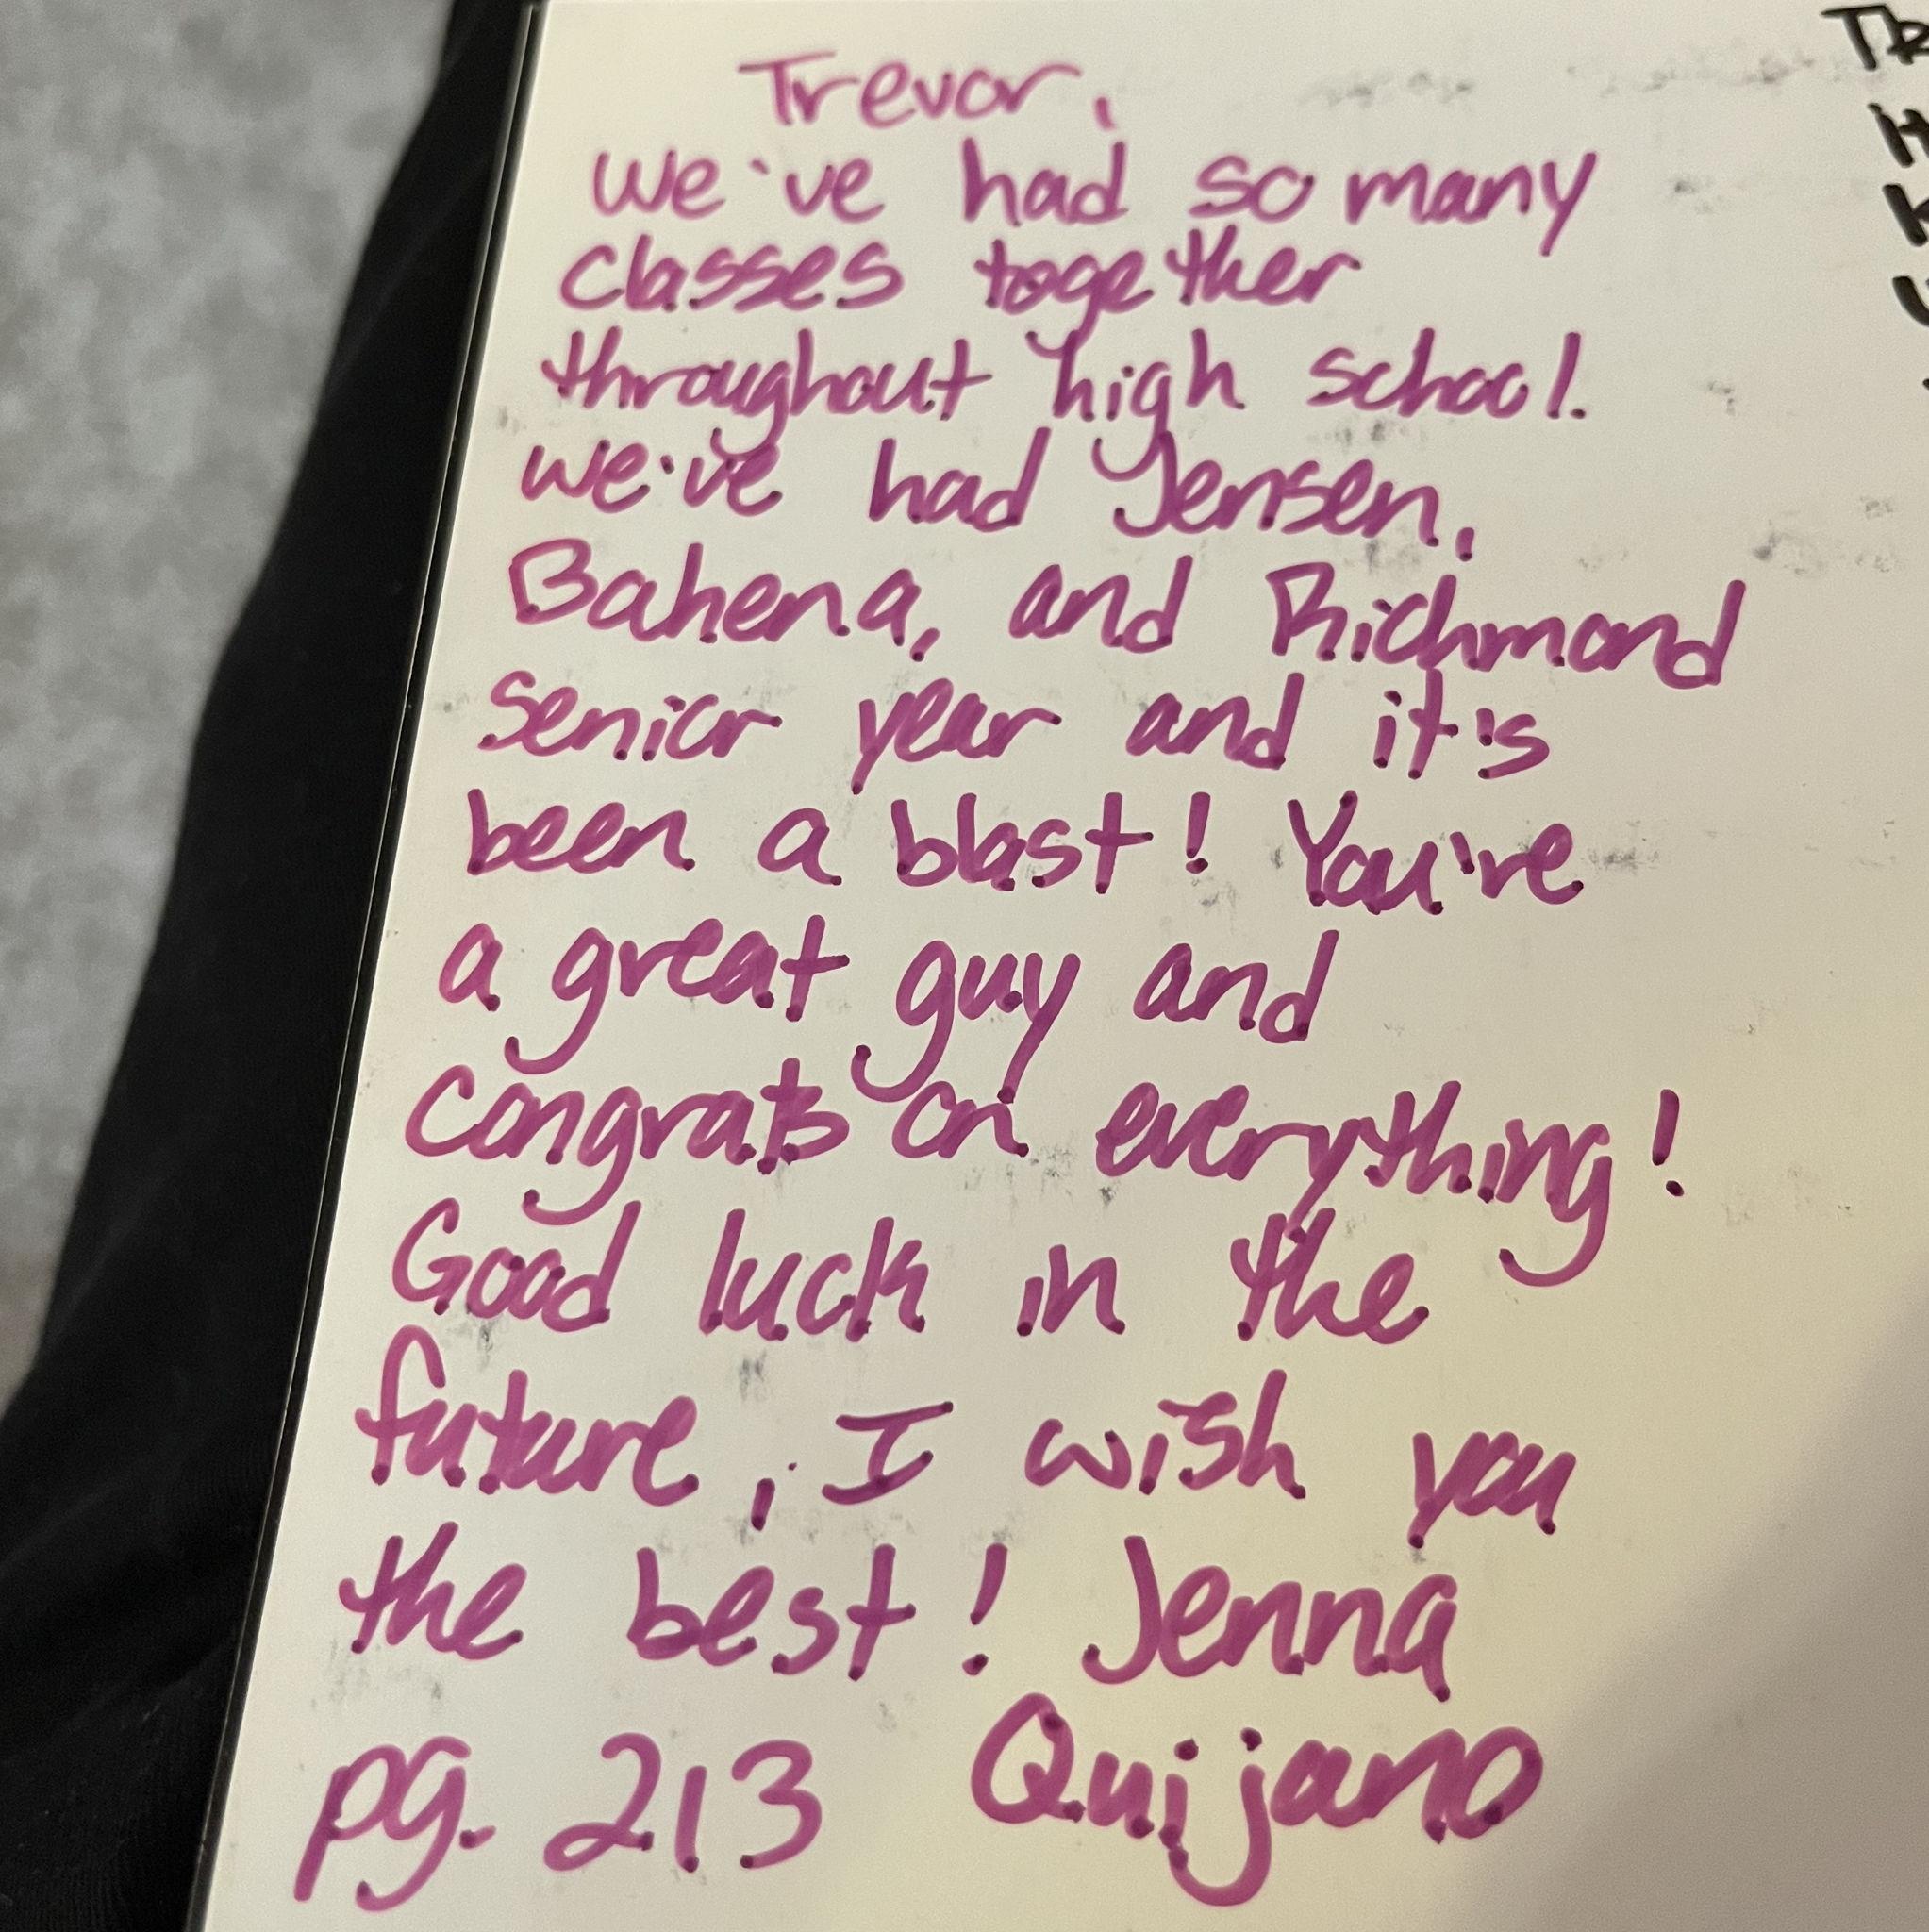 Trevor,
We've had so many
classes together
throughout high school.
we've had Jensen,
Bahena, and Richmond
senior year and it's
been a blast! You're
a great guy and
congrats on everything!
Good luck in the
future, I wish you
the best! Jenna
pg. 213 Quijano